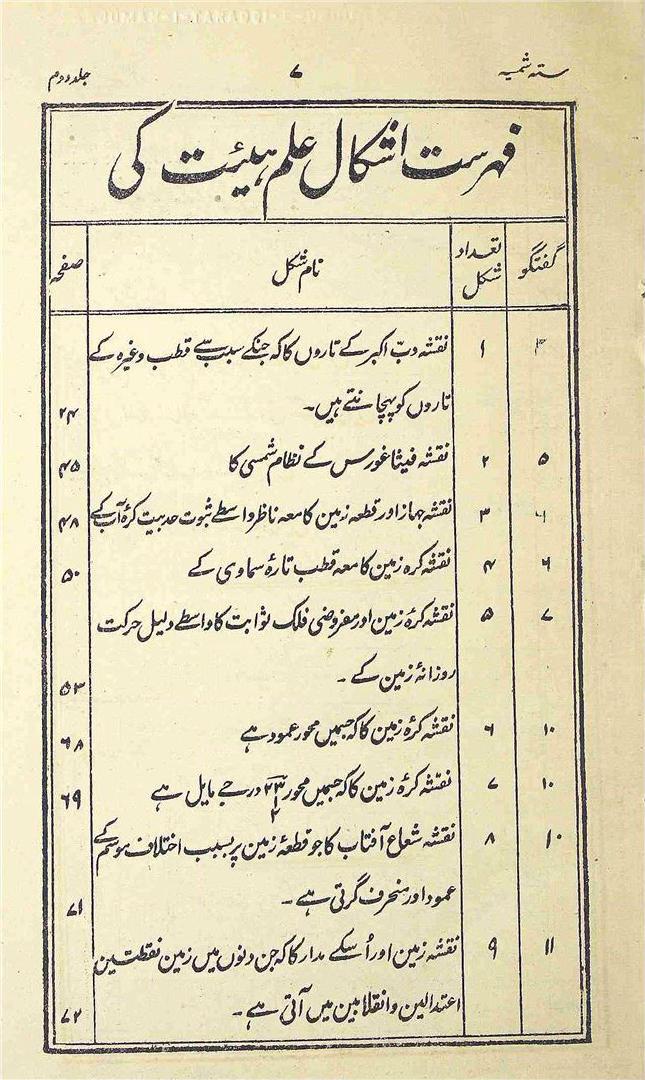 ستہ شمسیہ ۷ جلد دوم
فہرست اشکال علم ہیئت کی
گفتگو تعداد شکل نام شکل صفحہ
۱ نقشہ دبّ اکبر کے تاروں کا کہ جنکے سبب سے قطب وغیرہ کے
تاروں کو پہچانتے ہیں۔ ۲۴
۵ ۲ نقشہ فیثاغورس کے نظام شمسی کا ۴۵
۳ نقشہ جہاز اور قطعہ زمین کا معہ ناظر واسطے ثبوت حدبیت کرۂ آب کے ۴۸
۶ ۴ نقشہ کرہ زمین کا معہ قطب تارۂ سماوی کے ۵۰
۷ ۵ نقشہ کرۂ زمین اور مفروضی فلک ثوابت کا واسطے دلیل حرکت
روزانۂ زمین کے ۔ ۵۳
۱۰ ۶ نقشہ کرۂ زمین کا کہ جسمیں محور عمود ہے ۶۸
۱۰ ۷ نقشہ کرۂ زمین کا کہ جسمیں محور ۲۳ ۱/۲ درجے مایل ہے ۶۹
۱۰ ۸ نقشہ شعاع آفتاب کا جو قطعۂ زمین پر بسبب اختلاف موسم کے
عمود اور منحرف گرتی ہے ۔ ۷۱
۱۱ ۹ نقشہ زمین اور اُسکے مدار کا کہ جن دنوں میں زمین نقطتین
اعتدالین و انقلابین میں آتی ہے ۔ ۷۲